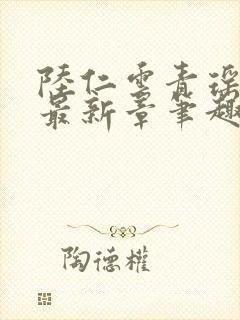 陸仁雲青瑤
最新章筆趣
陶德權